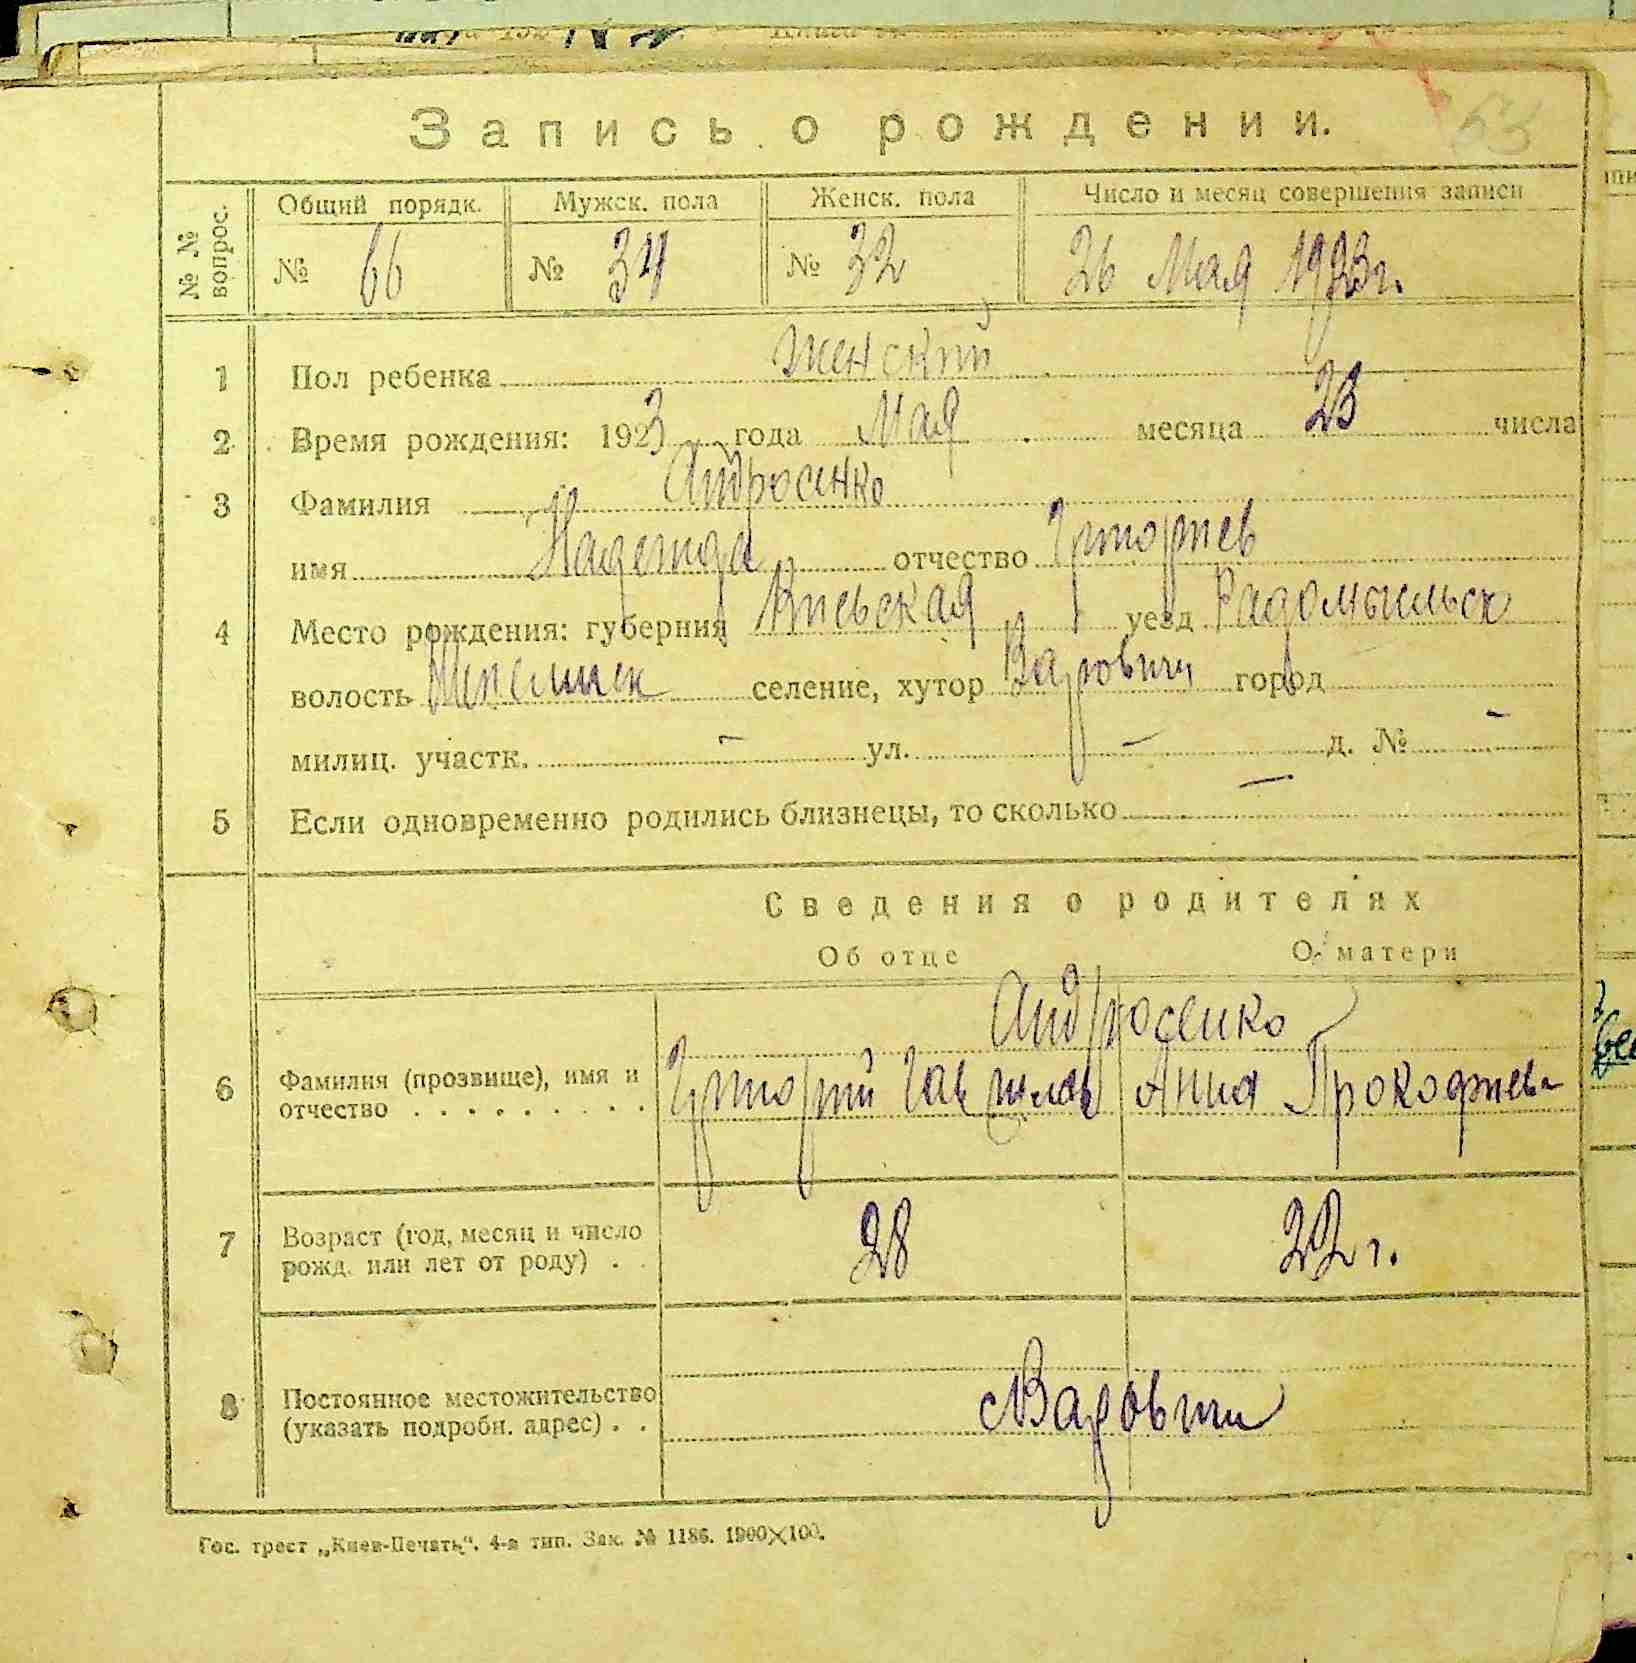 Запись о рождении.
53
№ № вопрос.
Общий порядк. Мужск. пола Женск. пола Число и месяц совершения записи
№ 66 № 34 № 32 26 Мая 1923 г.
1 Пол ребенка женский
2 Время рождения: 1923 года Мая месяца 23 числа
3 Фамилия Андросенко
имя Надежда отчество Григориев
4 Место рождения: губерния Киевская уезд Радомысльск
волость Шепелицк селение, хутор Варовичи город
милиц. участк. – ул. – д. № –
5 Если одновременно родились близнецы, то сколько –
Сведения о родителях
Об отце О матери
Андросенко
6 Фамилия (прозвище), имя и отчество . . . . . . . . . . Григорий Гаврилов Анна Прокофиев
7 Возраст (год, месяц и число рожд. или лет от роду) . . 28 22 г.
8 Постоянное местожительство (указать подробн. адрес) . . с Варовичи
Гос. трест „Киев-Печать“. 4-я тип. Зак. № 1186. 1900×100.